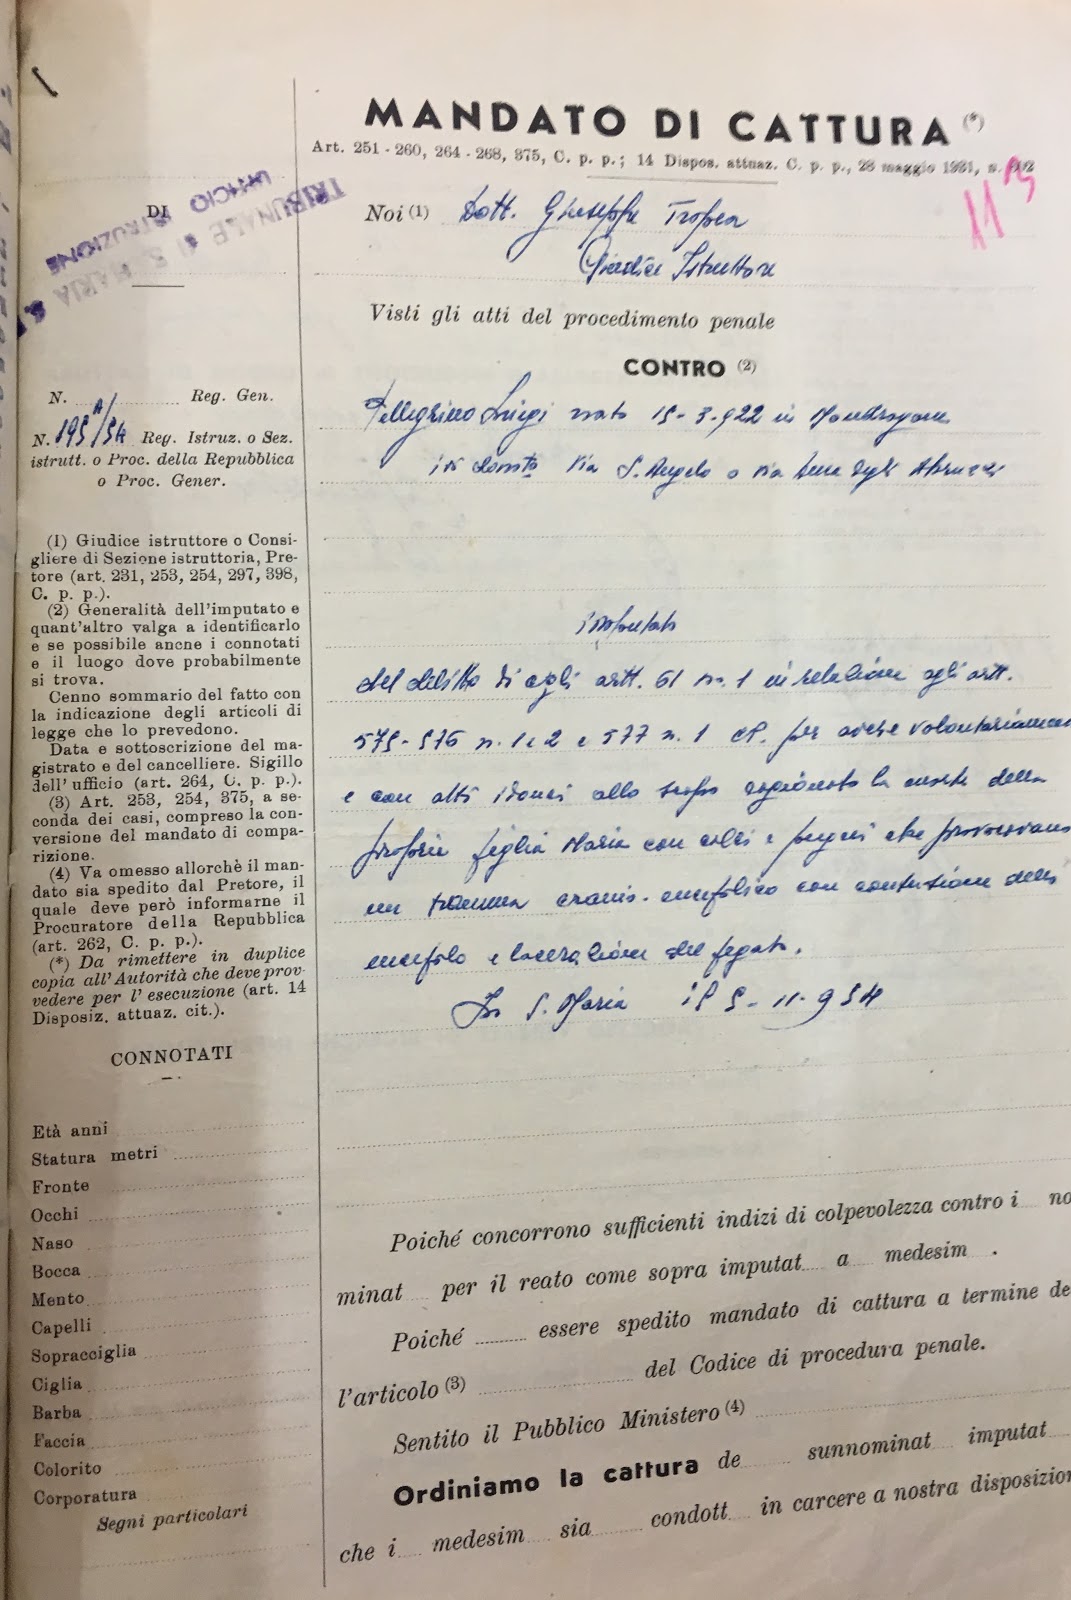 MANDATO DI CATTURA (*)
Art. 251 - 260, 264 - 268, 375, C. p. p.; 14 Dispos. attuaz. C. p. p., 28 maggio 1931, n. 602
11
DI
TRIBUNALE DI S. MARIA
UFFICIO ISTRUZIONE
Noi (1) Dott. Giuseppe Tropea
Giudice Istruttore
Visti gli atti del procedimento penale
CONTRO (2)
N. Reg. Gen.
N. 195 A/54 Reg. Istruz. o Sez.
istrutt. o Proc. della Repubblica
o Proc. Gener.
Pellegrino Luigi nato 15-3-922 in Mondragone
ivi dom.to Via S. Angelo o via Duca degli Abruzzi
imputato
del delitto di cui agli artt. 61 n. 1 in relazione agli artt.
575-576 n. 1 e 2 e 577 n. 1 CP. per avere volontariamen
e con atti idonei allo scopo cagionato la morte della
propria figlia Maria con calci e pugni che provocavano
un trauma cranio-encefalico con contusione dello
encefalo e lacerazione del fegato.
In S. Maria il 5-11-954
(1) Giudice istruttore o Consi-
gliere di Sezione istruttoria, Pre-
tore (art. 231, 253, 254, 297, 398,
C. p. p.).
(2) Generalità dell'imputato e
quant'altro valga a identificarlo
e se possibile anche i connotati
e il luogo dove probabilmente
si trova.
Cenno sommario del fatto con
la indicazione degli articoli di
legge che lo prevedono.
Data e sottoscrizione del ma-
gistrato e del cancelliere. Sigillo
dell'ufficio (art. 264, C. p. p.).
(3) Art. 253, 254, 375, a se-
conda dei casi, compreso la con-
versione del mandato di compa-
rizione.
(4) Va omesso allorchè il man-
dato sia spedito dal Pretore, il
quale deve però informarne il
Procuratore della Repubblica
(art. 262, C. p. p.).
(*) Da rimettere in duplice
copia all'Autorità che deve prov-
vedere per l'esecuzione (art. 14
Disposiz. attuaz. cit.).
CONNOTATI
Età anni
Statura metri
Fronte
Occhi
Naso
Bocca
Mento
Capelli
Sopracciglia
Ciglia
Barba
Faccia
Colorito
Corporatura
Segni particolari
Poiché concorrono sufficienti indizi di colpevolezza contro i no
minat per il reato come sopra imputat a medesim .
Poiché essere spedito mandato di cattura a termine de
l'articolo (3) del Codice di procedura penale.
Sentito il Pubblico Ministero (4)
Ordiniamo la cattura de sunnominat imputat
che i medesim sia condott in carcere a nostra disposizion